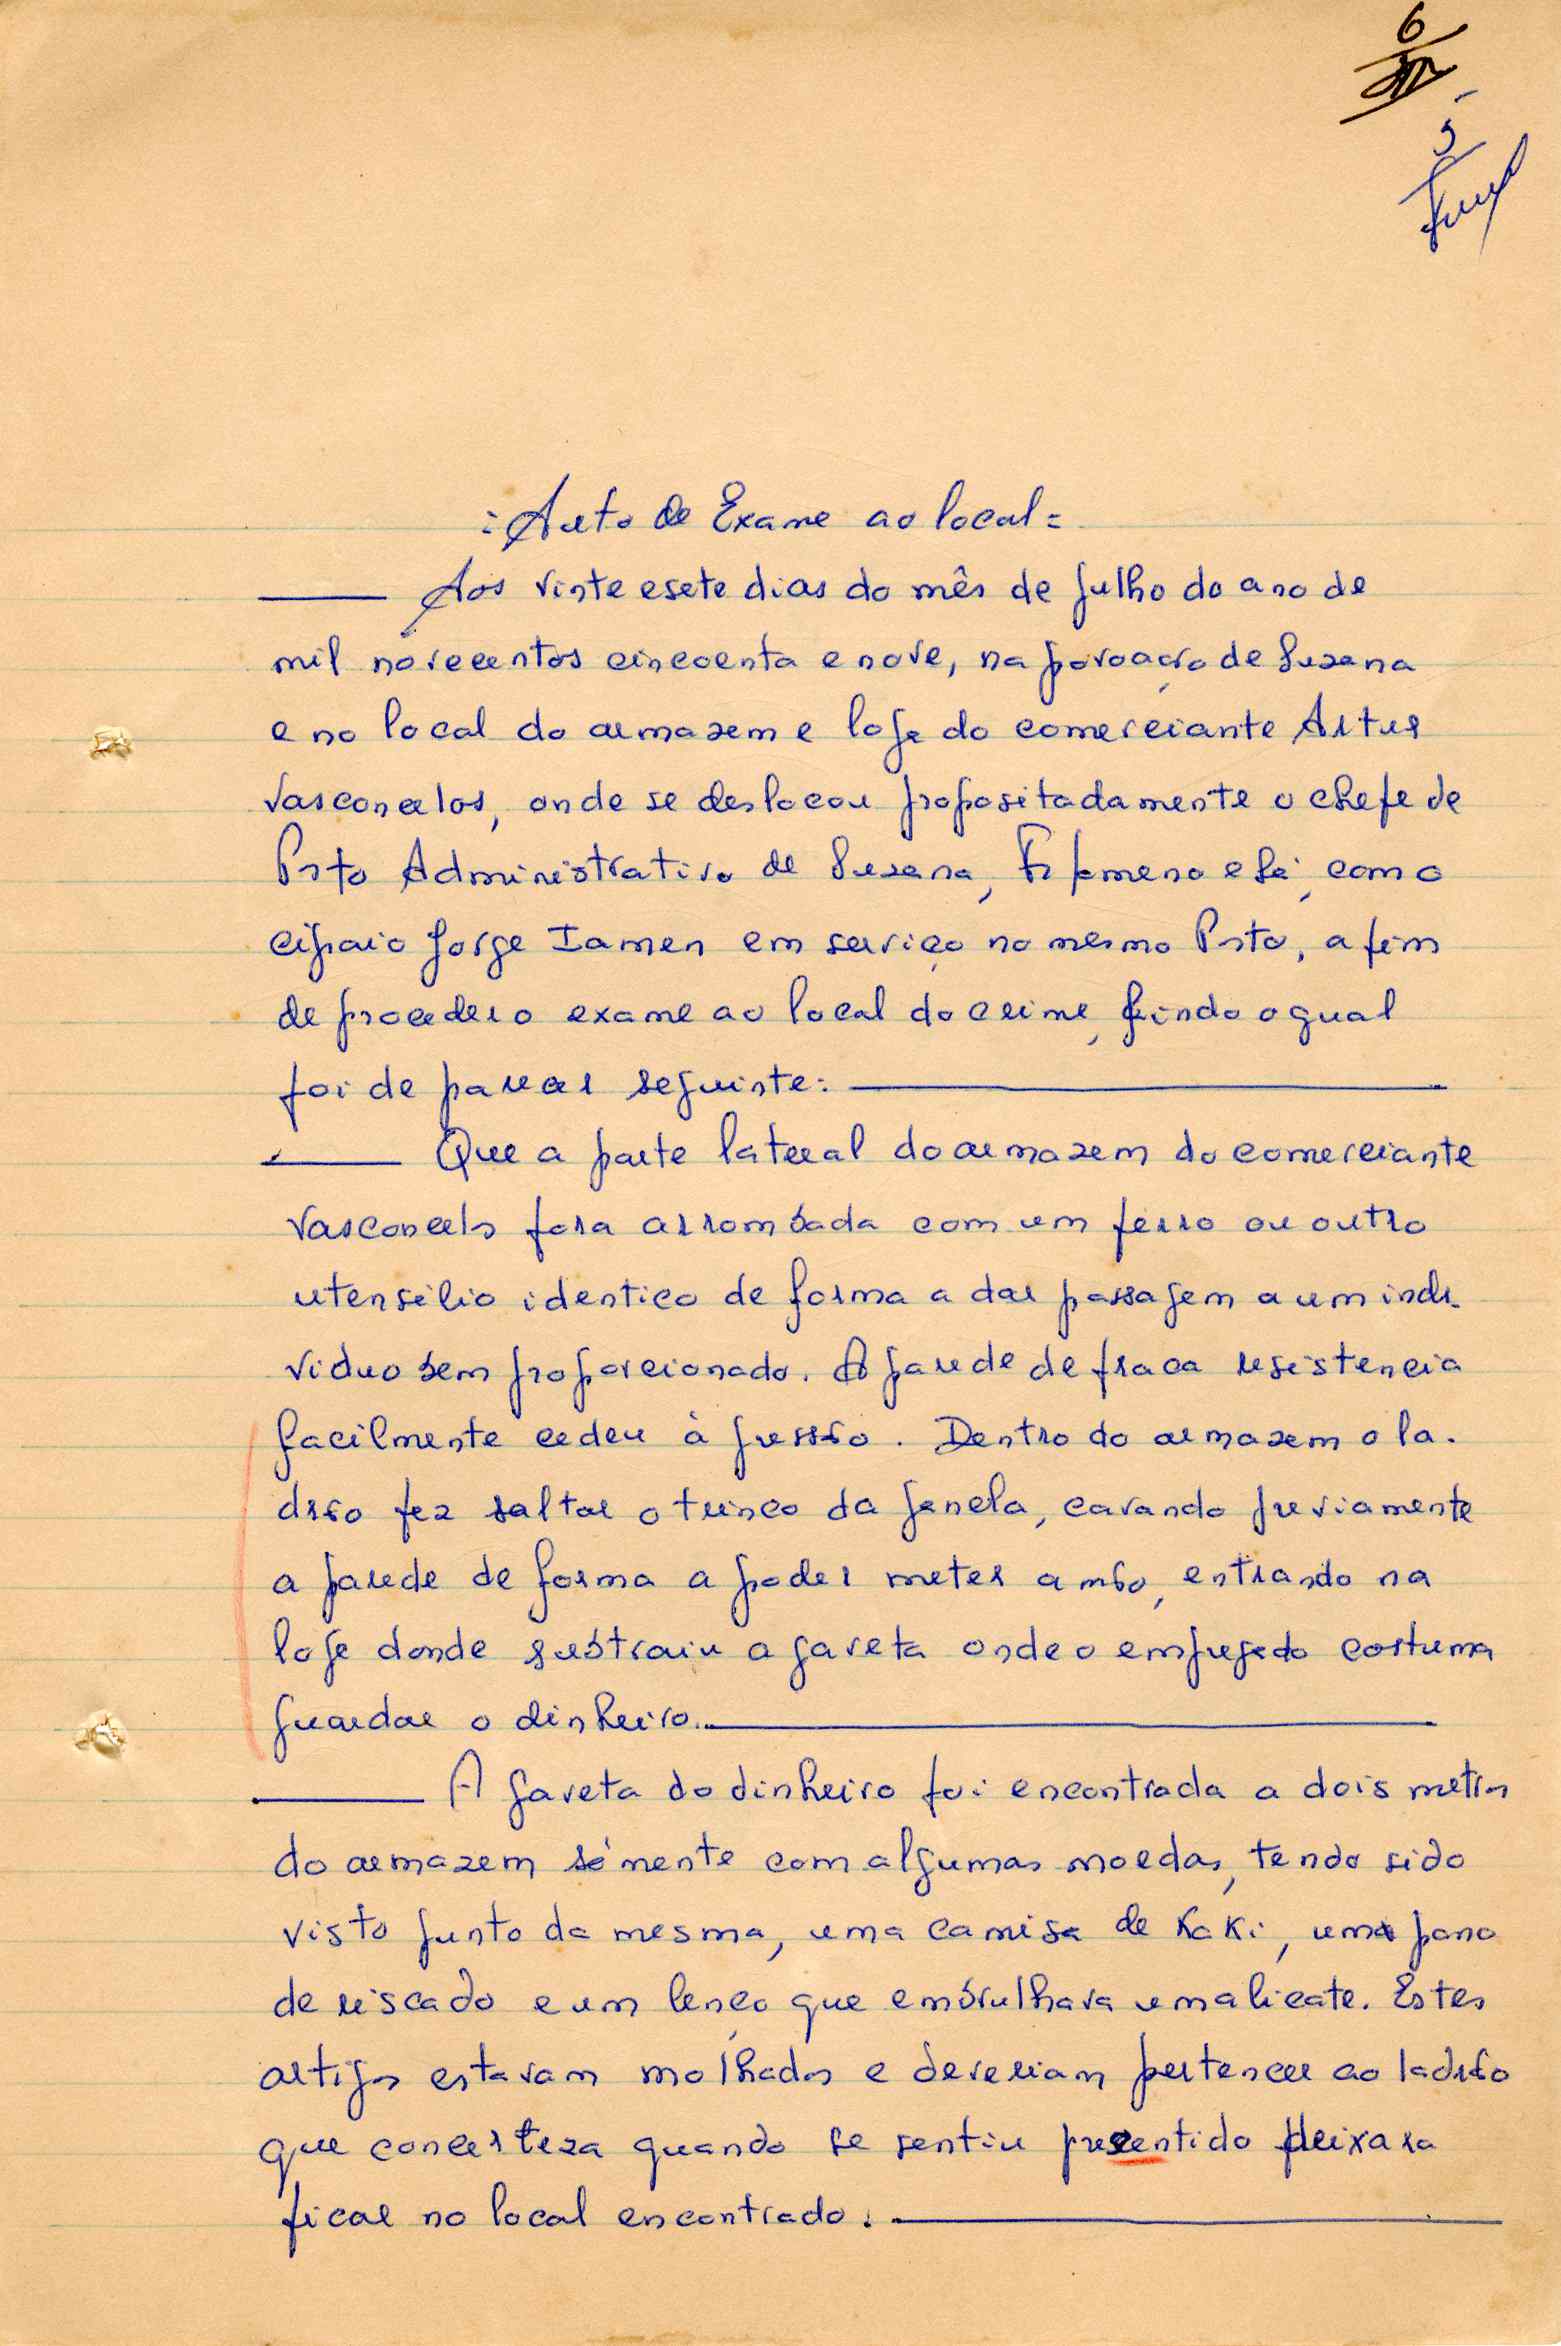 6
5
=Auto de Exame ao local=
Aos vinte e sete dias do mês de Julho do ano de
mil novecentos cincoenta e nove, na povoação de Suzana
e no local do armazem e loja do comerciante Artur
Vasconcelos, onde se deslocou propositadamente o chefe de
Posto Administrativo de Suzana, com o
cipaio Jorge Iamen em serviço no mesmo Posto, a fim
de proceder o exame ao local do crime, findo o qual
foi de parecer seguinte:
Que a parte lateral do armazem do comerciante
Vasconcelos fora arrombada com um ferro ou outro
utensilio identico de forma a dar passagem a um indi-
viduo bem proporcionado. A parede de fraca resistencia
facilmente cedeu à pressão. Dentro do armazem o la-
drão fez saltar o trinco da janela, cavando previamente
a parede de forma a poder meter a mão, entrando na
loja donde subtraiu a gaveta onde o empregado costuma
guardar o dinheiro.
A gaveta do dinheiro foi encontrada a dois metros
do armazem sómente com algumas moedas, tendo sido
visto junto da mesma, uma camisa de Kaki, um pano
de riscado e um lenço que embrulhava um alicate. Estes
artigos estavam molhados e deveriam pertencer ao ladrão
que concerteza quando se sentiu presentido deixara
ficar no local encontrado.